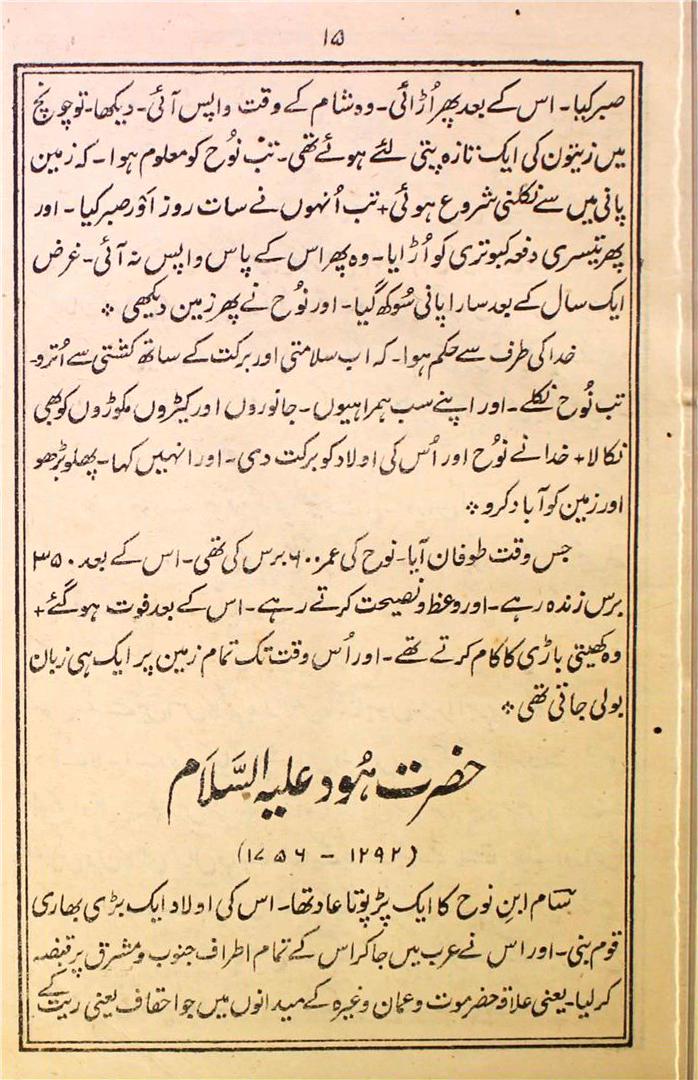 ۱۵
صبر کیا۔ اس کے بعد پھر اُڑائی۔ وہ شام کے وقت واپس آئی۔ دیکھا۔ تو چونچ
میں زیتون کی ایک تازہ پتی لئے ہوئے تھی۔ تب نوُح کو معلوم ہوا۔ کہ زمین
پانی میں سے نکلنی شروع ہوئی+ تب اُنہوں نے سات روز اَوْر صبر کیا۔ اور
پھر تیسری دفعہ کبوتری کو اُڑایا۔ وہ پھر اس کے پاس واپس نہ آئی۔ غرض
ایک سال کے بعد سارا پانی سُوکھ گیا۔ اور نوُح نے پھر زمین دیکھی ❖
خدا کی طرف سے حکم ہوا۔ کہ اب سلامتی اور برکت کے ساتھ کشتی سے اُترو۔
تب نوُح نکلے۔ اور اپنے سب ہمراہیوں۔ جانوروں اور کیڑوں مکوڑوں کو بھی
نکالا+ خدا نے نوُح اور اُس کی اولاد کو برکت دی۔ اور انہیں کہا۔ پھلو بڑھو
اور زمین کو آباد کرو ❖
جس وقت طوفان آیا۔ نوح کی عمر ۶۰۰ برس کی تھی۔ اس کے بعد ۳۵۰
برس زندہ رہے۔ اور وعظ و نصیحت کرتے رہے۔ اس کے بعد فوت ہو گئے+
وہ کھیتی باڑی کا کام کرتے تھے۔ اور اُس وقت تک تمام زمین پر ایک ہی زبان
بولی جاتی تھی ❖
حضرت ہُود علیہ السَّلام
(۱۲۹۲ – ۱۷۵۶)
سام ابنِ نوح کا ایک پڑپوتا عاد تھا۔ اس کی اولاد ایک بڑی بھاری
قوم بنی۔ اور اس نے عرب میں جا کر اس کے تمام اطراف جنوب و مشرق پر قبضہ
کر لیا۔ یعنی علاقہ حضرموت و عمان وغیرہ کے میدانوں میں جو احقاف یعنی ریت کے